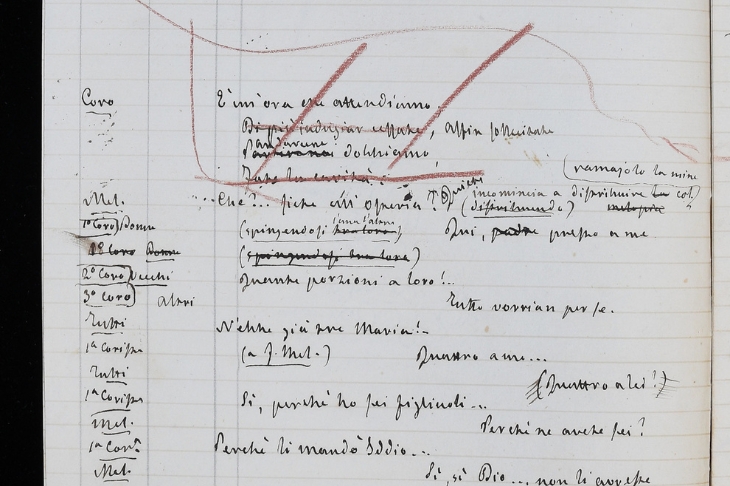 Coro È un'ora che attendiamo.
Di più indugiar cessate, assin sollecitate
andarcene
dobbiamo
Fate la carità!..
ramajolo la mine
Mel. Che?... siche all'osteria?
incomincia a distribuire la col
(distribuendo)
1° Coro) Donne (spingendosi l'una l'altra) Qui, padre presso a me.
1° Coro Donne (spingendosi tra loro)
2° Coro Vecchi Quante porzioni a loro!..
3° Coro) altri Tutto vorrian per se.
Tutti N'ebbe già tre Maria!..
1ª Corista (a F. Mel.) Quattro a me...
Tutti (Quattro a lei!)
1ª Corista Sì, perché ho sei figliuoli...
Mel. Perché ne avete sei?
1ª Cor.ª Perché li mandò Iddio...
Mel. Sì, sì Dio... non li avreste